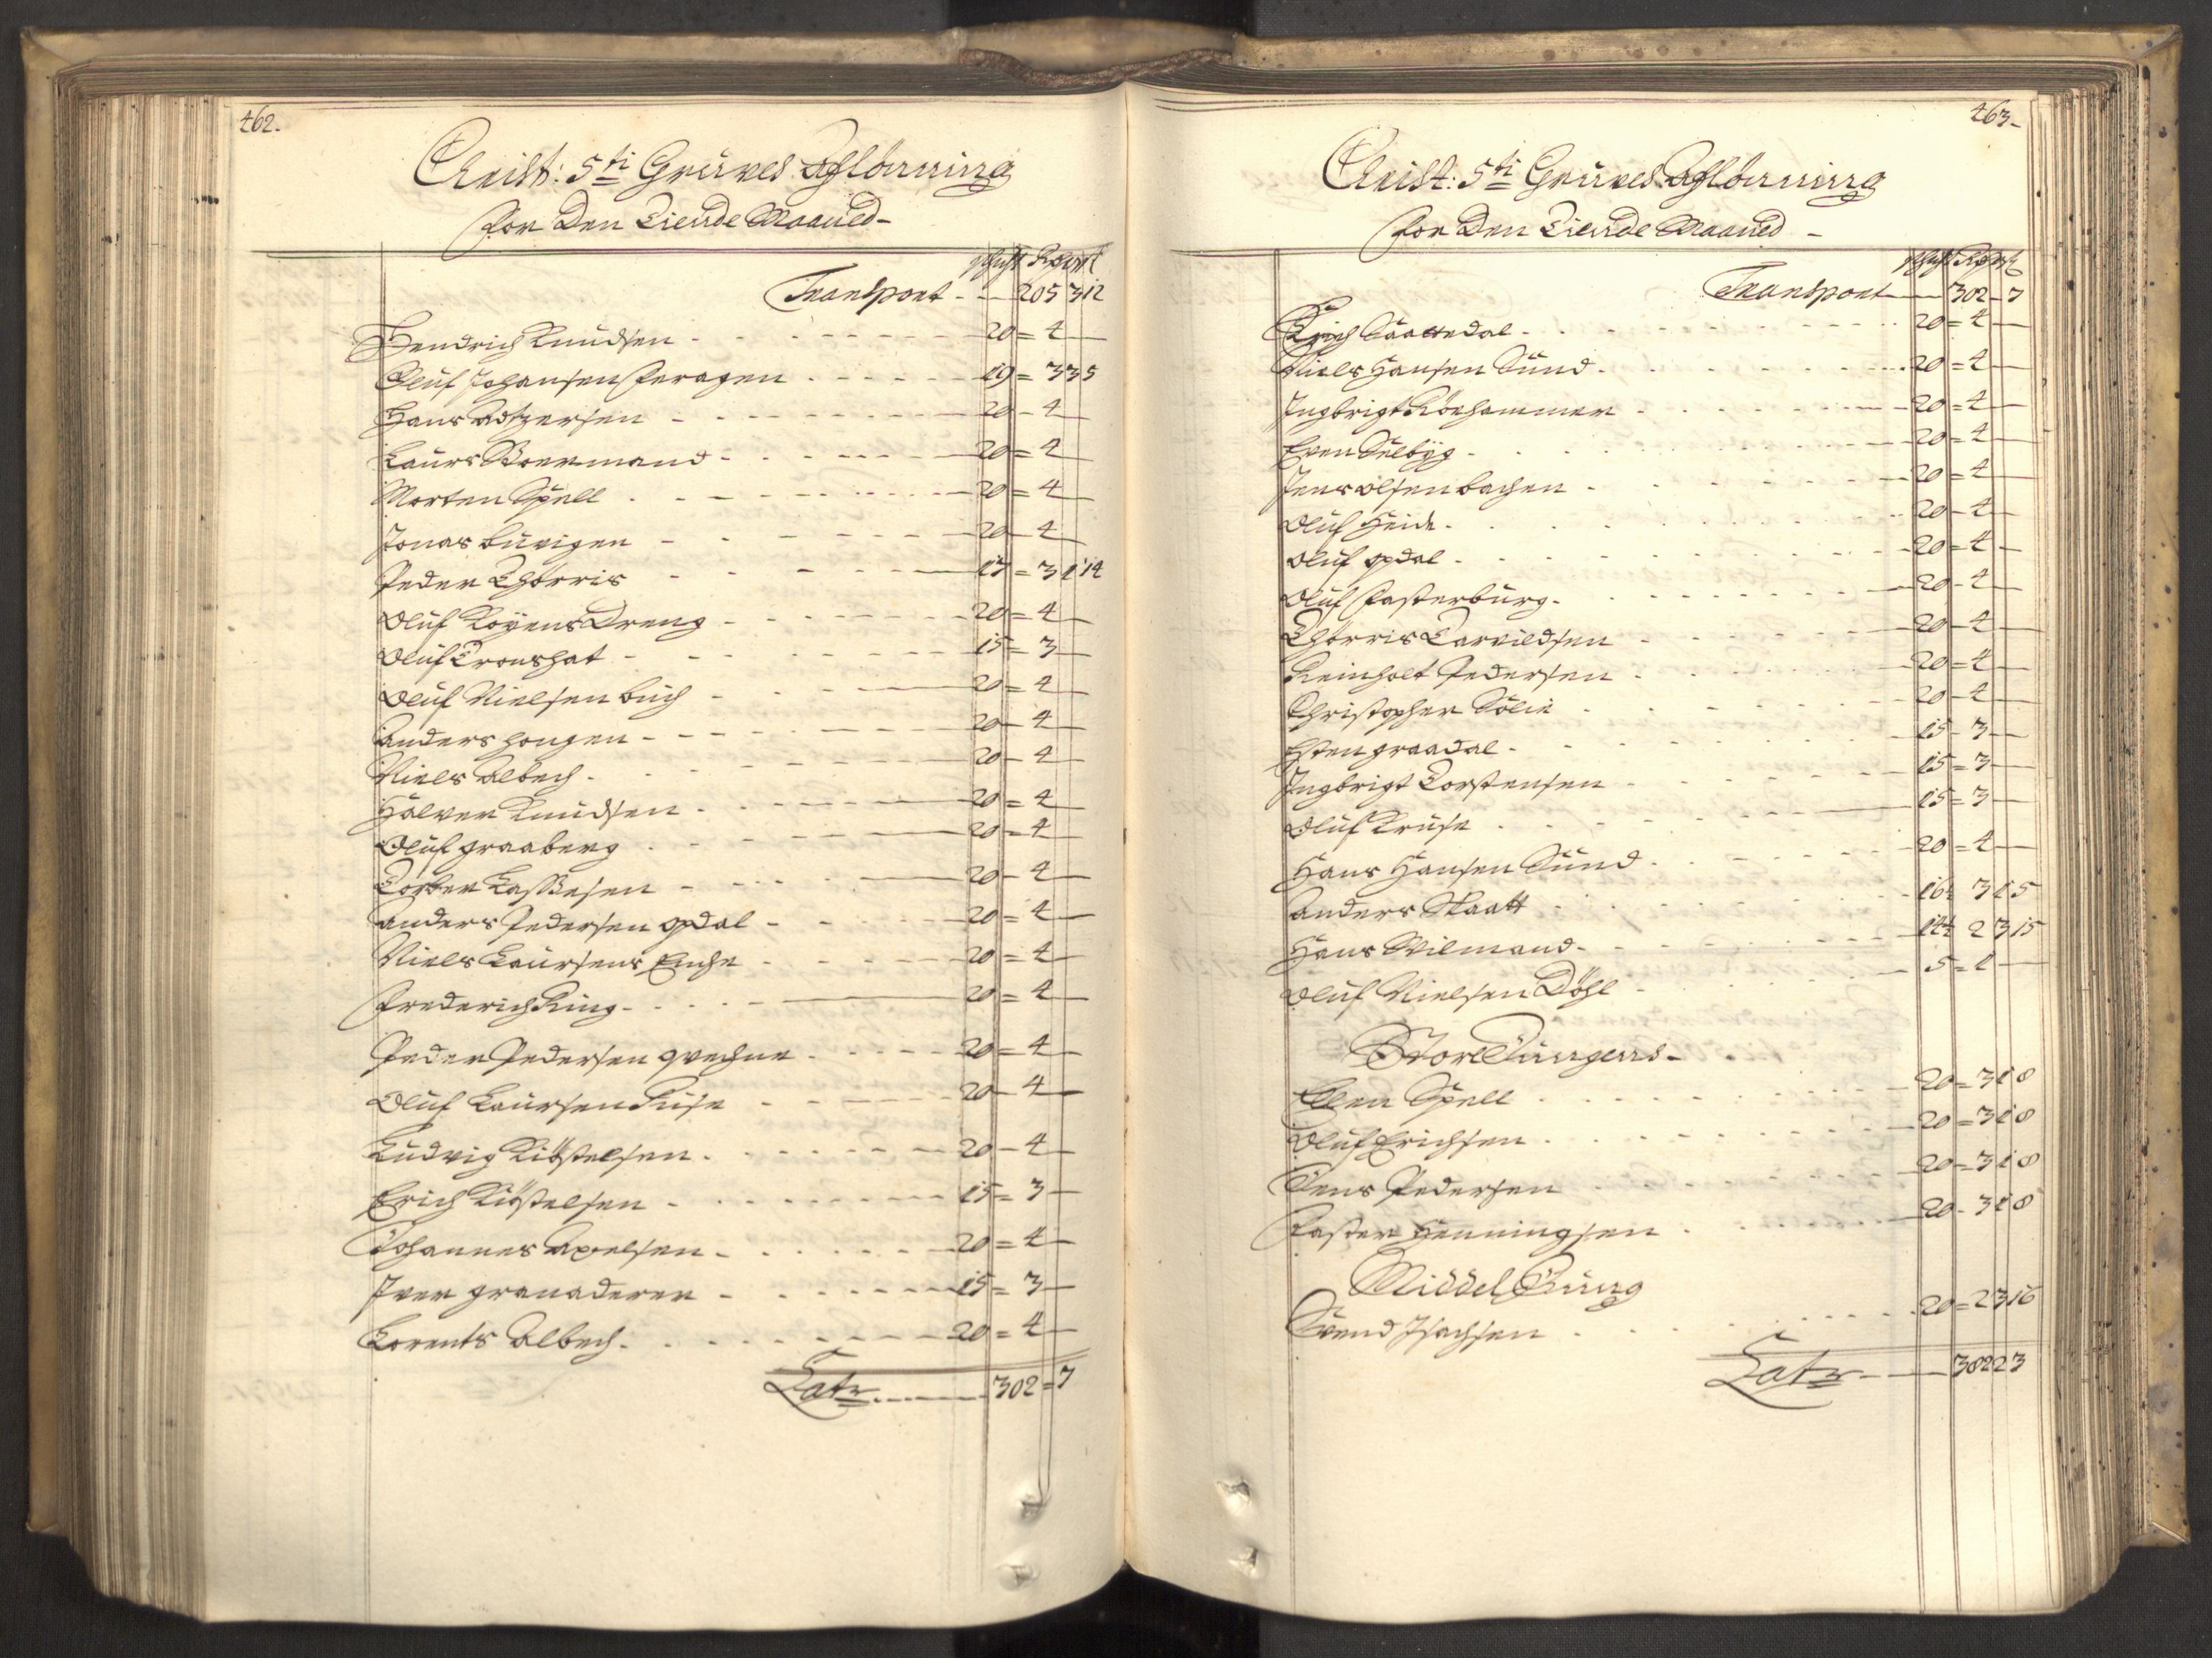 462.
Christ: 5ti Gruves Aflønning
for Den Tiende Maaned
Schicht Rdr ort ſ
Transport - 205 3 12
Hendrich Knudsen - 20 = 4 -
Oluf Johansen Feragen - 19 = 3 3 5
Hans Adtzersen - 20 - 4 -
Laurs Bormand - 20 = 4 -
Morten Spell - 20 = 4 -
Jonas Buvigen - 20 - 4 -
Peder Thorris - 17 = 3 1 14
Oluf Koyens Dreng - 20 = 4 -
Oluf Tronshat - 15 = 3 -
Oluf Nielsen buch - 20 = 4 -
Anders hougen - 20 - 4 -
Niels Albech - 20 - 4 -
Halver Knudsen - 20 = 4 -
Oluf graaberg - 20 - 4 -
Torber Lassesen - 20 - 4 -
Anders Pedersen opdal - 20 = 4 -
Niels Laursens Enche - 20 = 4 -
Frederich Ring - 20 = 4 -
Peder Pedersen qvechne - 20 = 4 -
Oluf Laursen Kuse - 20 - 4 -
Ludvig Kiøstelsen - 20 - 4 -
Erich Kiøstelsen - 15 = 3 -
Johannes Axelsen - 20 = 4 -
Iver granaderer - 15 = 3 -
Lorents Albech - 20 = 4 -
Latr - 302 = 7
463
Christ: 5ti Gruves Aflønning
for Den Tiende Maaned -
Schicht Rdr ort ſ
Transport - 302 - 7
Erich Saattedal - 20 = 4 -
Niels Hansen Sund - 20 = 4 -
Ingbrigt Rønhammer - 20 = 4 -
Even Selbyg - 20 = 4 -
Jens Olsen bachen - 20 = 4 -
Oluf Heide - 20 - 4 -
Oluf opdal - 20 = 4 -
Oluf Fasterburg - 20 - 4 -
Thorris Tarvildsen - 20 - 4 -
Reinholt Pedersen - 20 = 4 -
Christopher Sølie - 20 - 4 -
Esten graadal - 15 - 3 -
Ingbrigt Torstensen - 15 = 3 -
Oluf Kruse - 15 = 3 -
Hans Hansen Sund - 20 = 4 -
Anders Skaatt - 16½ 3 1 5
Hans Wilmand - 14½ 2 3 15
Oluf Nielsen Døhl - 5 = 1 -
Store Jungens -
Elen Spell - 20 = 3 1 8
Oluf Erichsen - 20 = 3 1 8
Jens Pedersen - 20 - 3 1 8
Faster Henningsen - 20 - 3 1 8
Middel Jung
Svend Isachsen - 20 = 2 3 16
Latr - 382 2 3